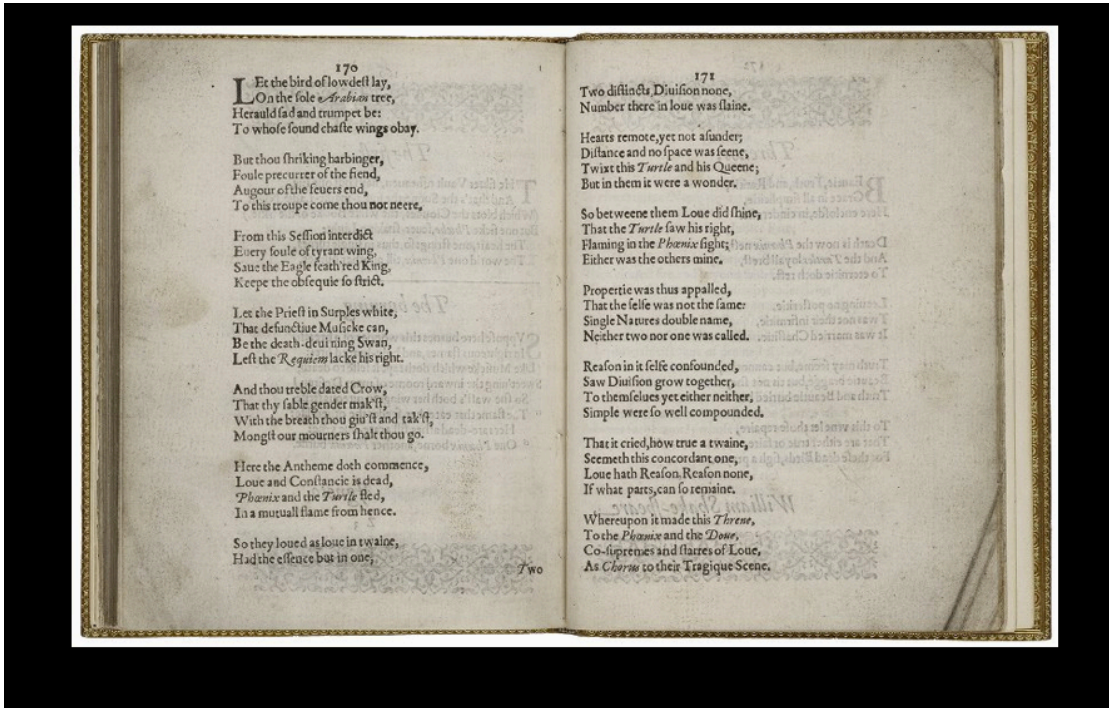 170
LEt the bird of lowdeſt lay,
On the ſole Arabian tree,
Herauld ſad and trumpet be:
To whoſe ſound chaſte wings obay.
But thou ſhriking harbinger,
Foule precurrer of the fiend,
Augour of the feuers end,
To this troupe come thou not neere.
From this Seſſion interdict
Euery foule of tyrant wing,
Saue the Eagle feath'red King,
Keepe the obſequie ſo ſtrict.
Let the Prieſt in Surples white,
That defunctiue Muſicke can,
Be the death-deuining Swan,
Leſt the Requiem lacke his right.
And thou treble dated Crow,
That thy ſable gender mak'ſt,
With the breath thou giu'ſt and tak'ſt,
Mongſt our mourners ſhalt thou go.
Here the Antheme doth commence,
Loue and Conſtancie is dead,
Phœnix and the Turtle fled,
In a mutuall flame from hence.
So they loued as loue in twaine,
Had the eſſence but in one,
Two
171
Two diſtincts, Diuiſion none,
Number there in loue was ſlaine.
Hearts remote, yet not aſunder;
Diſtance and no ſpace was ſeene,
Twixt this Turtle and his Queene;
But in them it were a wonder.
So betweene them Loue did ſhine,
That the Turtle ſaw his right,
Flaming in the Phœnix ſight;
Either was the others mine.
Propertie was thus appalled,
That the ſelfe was not the ſame:
Single Natures double name,
Neither two nor one was called.
Reaſon in it ſelfe confounded,
Saw Diuiſion grow together,
To themſelues yet either neither,
Simple were ſo well compounded.
That it cried, how true a twaine,
Seemeth this concordant one,
Loue hath Reaſon, Reaſon none,
If what parts, can ſo remaine.
Whereupon it made this Threne,
To the Phœnix and the Doue,
Co-ſupremes and ſtarres of Loue,
As Chorus to their Tragique Scene.